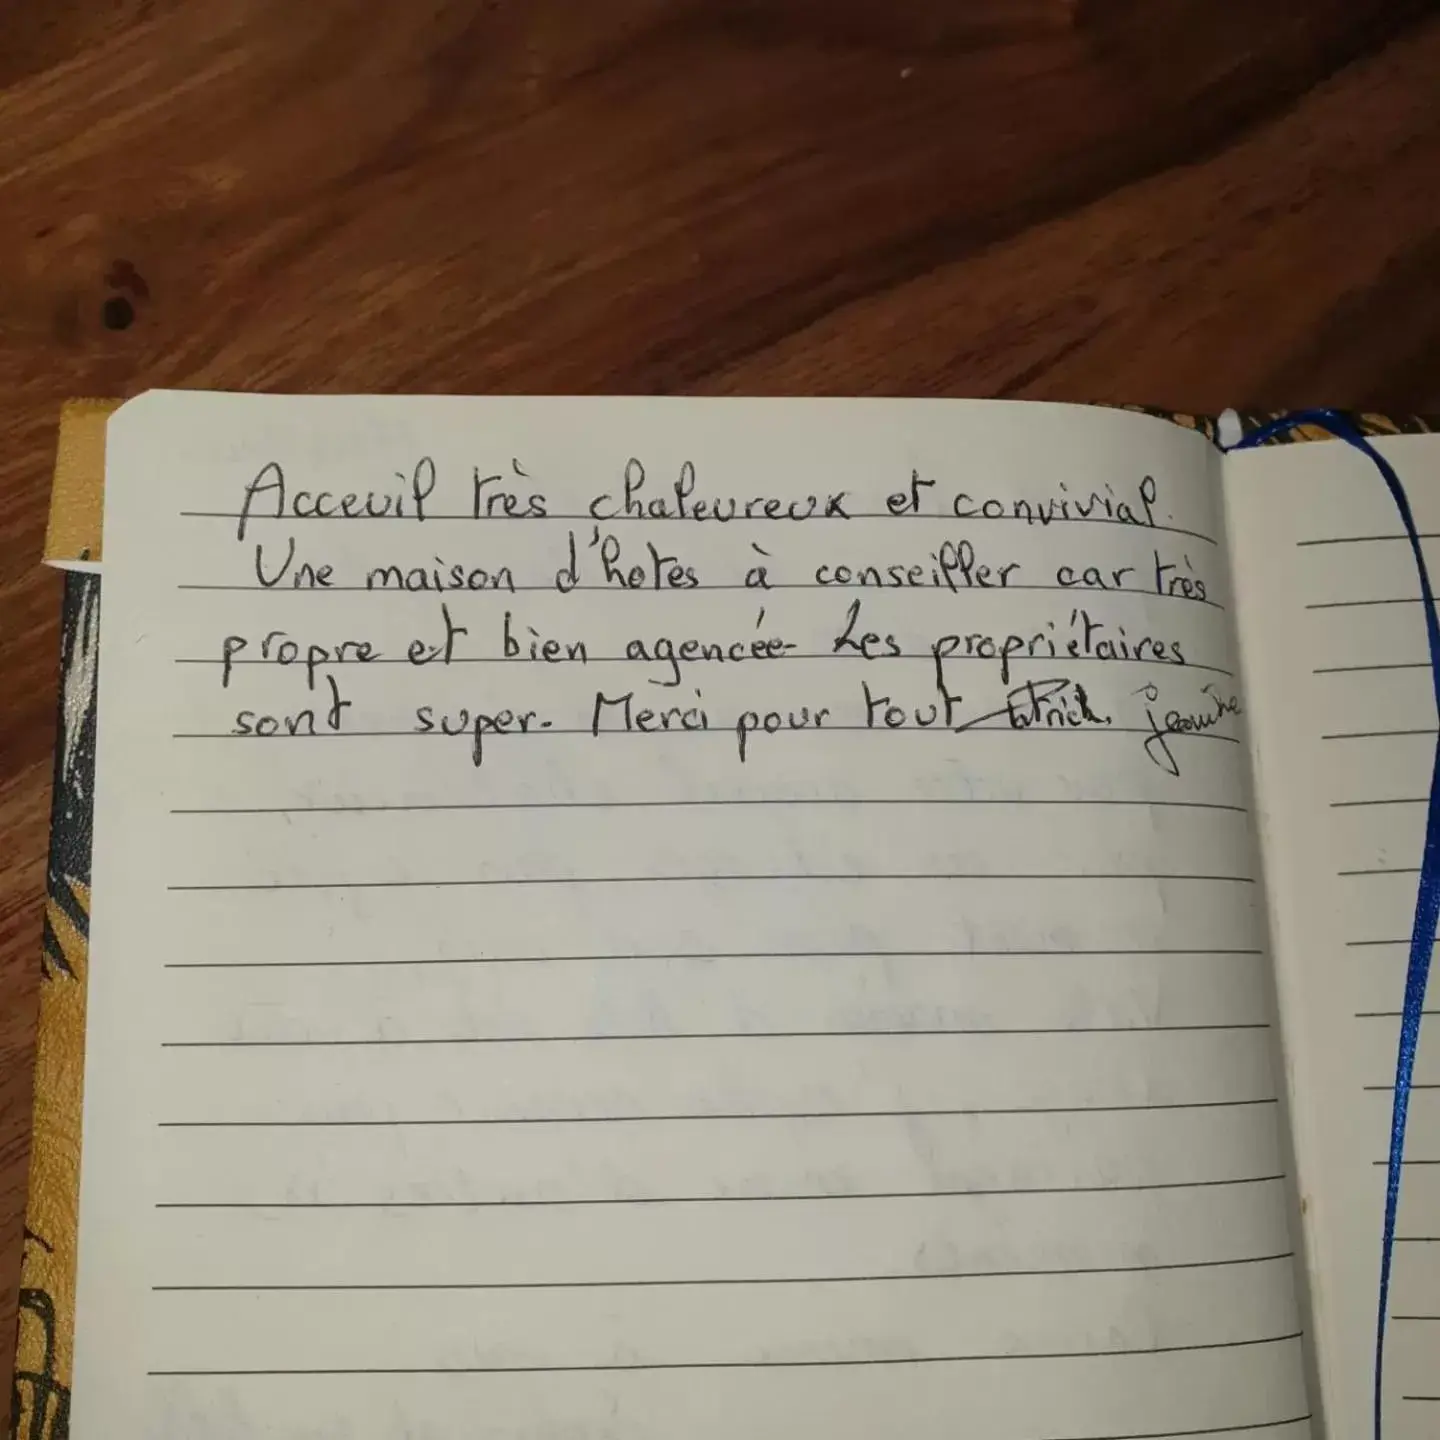 Acceuil très chaleureux et convivial.
Une maison d'hotes à conseiller car très
propre et bien agencée. Les propriétaires
sont super. Merci pour tout Patrick. jeanine